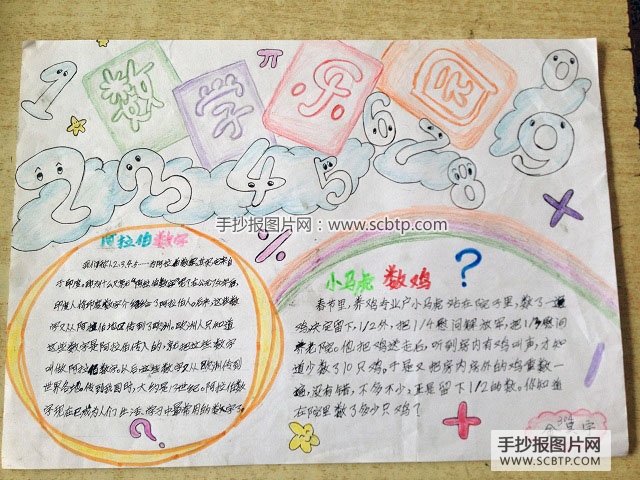 数学乐园
1 2 3 4 5 6 7 8 9 0
π
手抄报图片网：www.scbtp.com
阿拉伯数字
%
小马虎 数鸡
?
我们学的1.2.3.4.5……的阿拉伯数字其实是来自
于印度,那为什么又要叫"阿拉伯数字"呢?在公元7世纪
印度人将印度数字介绍给了阿拉伯人。后来,这些数
字又从阿拉伯地区传到了欧洲,欧洲人只知道
这些数字是阿拉伯传入的,就把这些数字
叫做阿拉伯数字,以后这些数字又从欧洲传到
世界各地,传到我国时,大约是13世纪。阿拉伯数
字现在已成为人们生活、学习中最常用的数字了。
春节里,养鸡专业户小马虎站在院子里,数了一遍
鸡决定留下,1/2外,把1/4慰问解放军,把1/3慰问
养老院。他把鸡送走后,听到房内有鸡叫声,才知
道少数了10只鸡。于是又把房内房外的鸡重数一
遍,没有错,不多不少,正是留下1/2的数。你知道
在院里数了多少只鸡?
?
+
手抄报图片网
WWW.SCBTP.COM